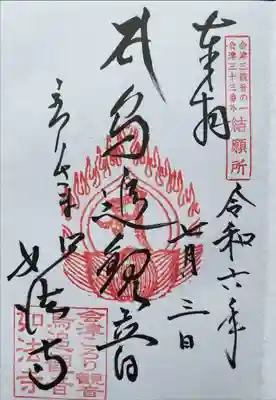 奉拝
令和六年
七月三日
鳥追観音
如法寺
会津三観音の一
会津三十三番外
結願所
会津ころり観音
鳥追観音
如法寺